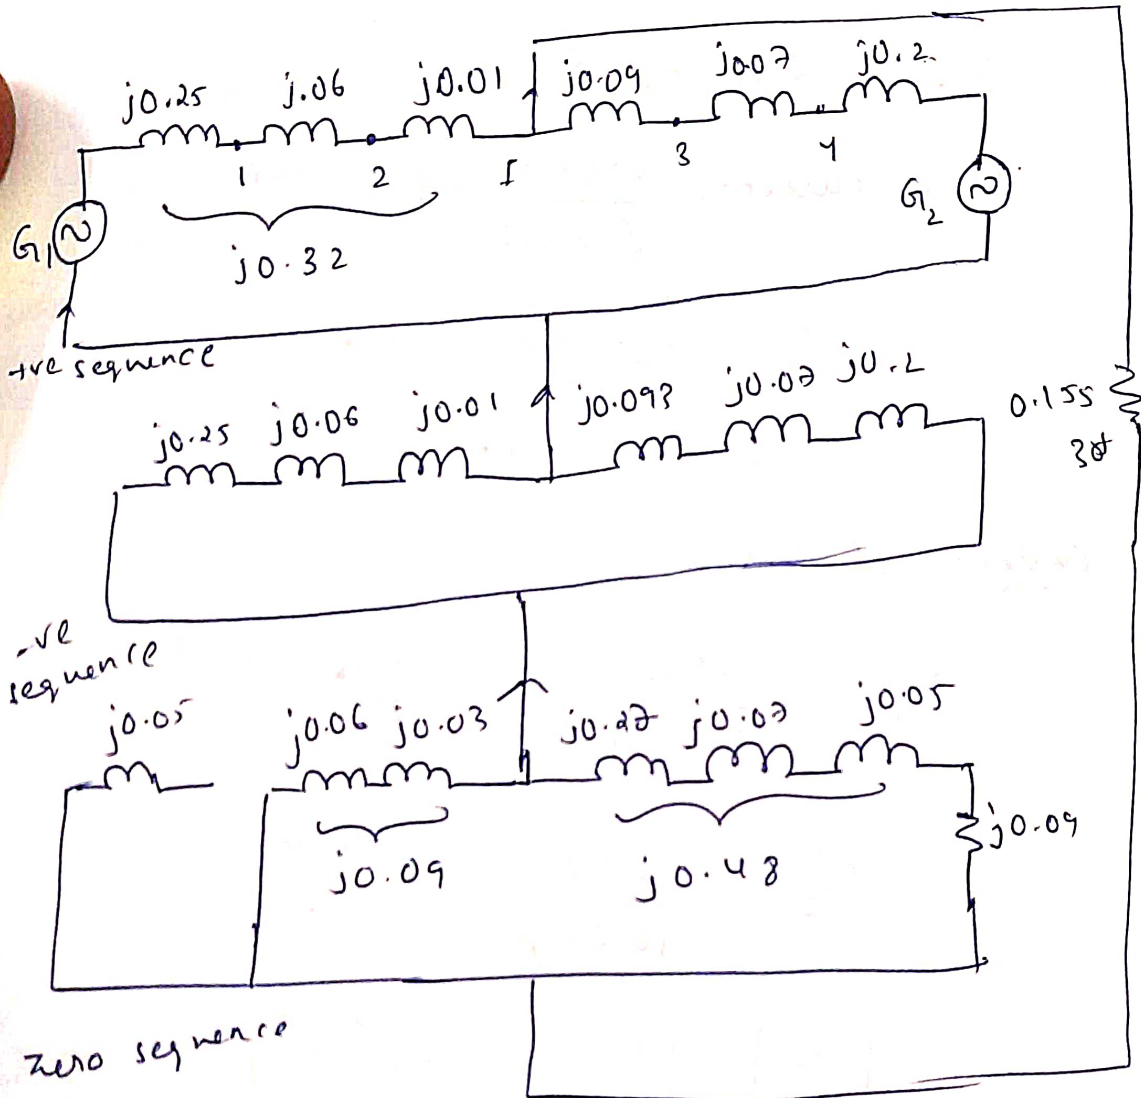 j0.25 j.06 j0.01 j0.09 j0.07 j0.2
1 2 f 3 4
G1 G2
j0.32
+ve sequence
j0.25 j0.06 j0.01 j0.09 j0.07 j0.2
0.155
-ve
sequence
j0.05 j0.06 j0.03 j0.27 j0.07 j0.05
j0.09
j0.09 j0.48
Zero sequence